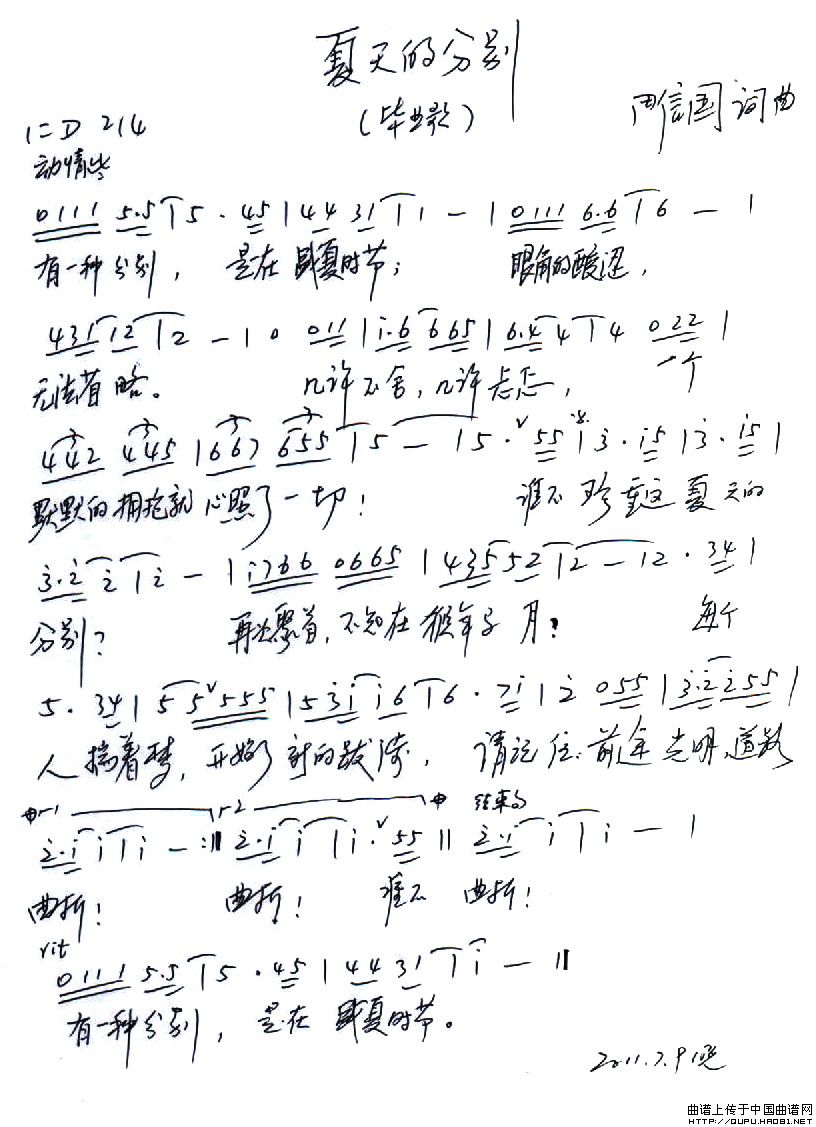 夏天的分别
(毕业歌)
1=D 2/4
词曲
动情些
0111 5·5 | 5 · 45 | 44 31 | 1 — | 0111 6·6 | 6 — |
有一种分别, 是在盛夏时节; 眼角的酸涩,
431 12 | 2 — | 0 011 | i·6 665 | 6·4 4 | 4 022 |
无法省略。 几许不舍,几许忐忑, 一个
442 445 | 667 655 | 5 — | 5 · 55 | 3 · i5 | 3 · i5 |
默默的拥抱就心照了一切! 谁不珍重这夏天的
3·2 2 | 2 — | i766 0665 | 435 52 | 2 — | 2 · 34 |
分别? 再次聚首,不知在猴年马月? 每个
5 · 34 | 5 5 555 | 53i i6 | 6 · 7i | 2 055 | 3·2 255 |
人揣着梦,开始了新的跋涉, 请记住:前途光明、道路
1 2 结束句
2·i i | i — :‖ 2·i i | i · 55 ‖ 2·i i | i — |
曲折! 曲折! 谁不 曲折!
rit
0111 5·5 | 5 · 45 | 44 31 | i — ‖
有一种分别, 是在盛夏时节。
2011.7.9晚
曲谱上传于中国曲谱网
HTTP://QUPU.HAO81.NET